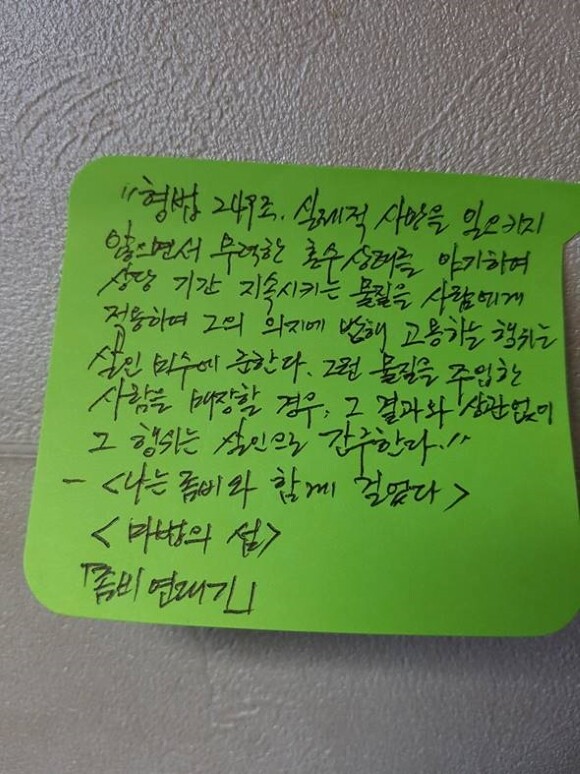 "형법 249조. 실제적 사망을 일으키지
않으면서 무력한 혼수상태를 야기하여
상당 기간 지속시키는 물질을 사람에게
적용하여 그의 의지에 반해 고용하는 행위는
살인 미수에 준한다. 그런 물질을 주입한
사람을 매장할 경우, 그 결과와 상관없이
그 행위는 살인으로 간주한다."
- <나는 좀비와 함께 걸었다>
<마법의 섬>
『좀비 연대기』